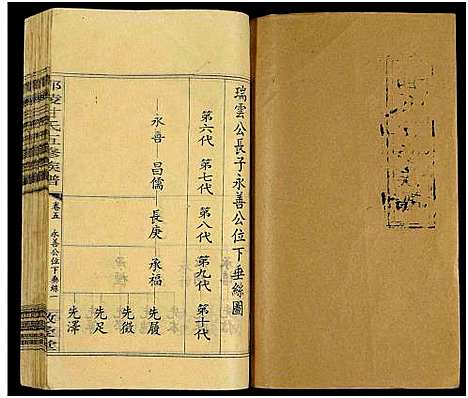 瑞雲公長子永善公位下垂絲圖
第六代 第七代 第八代 第九代 第十代
永善 昌儒 長庚 承福
先履
先徵
先足
先澤
氏五修族譜
卷五
永善公位下垂絲一
敦室堂